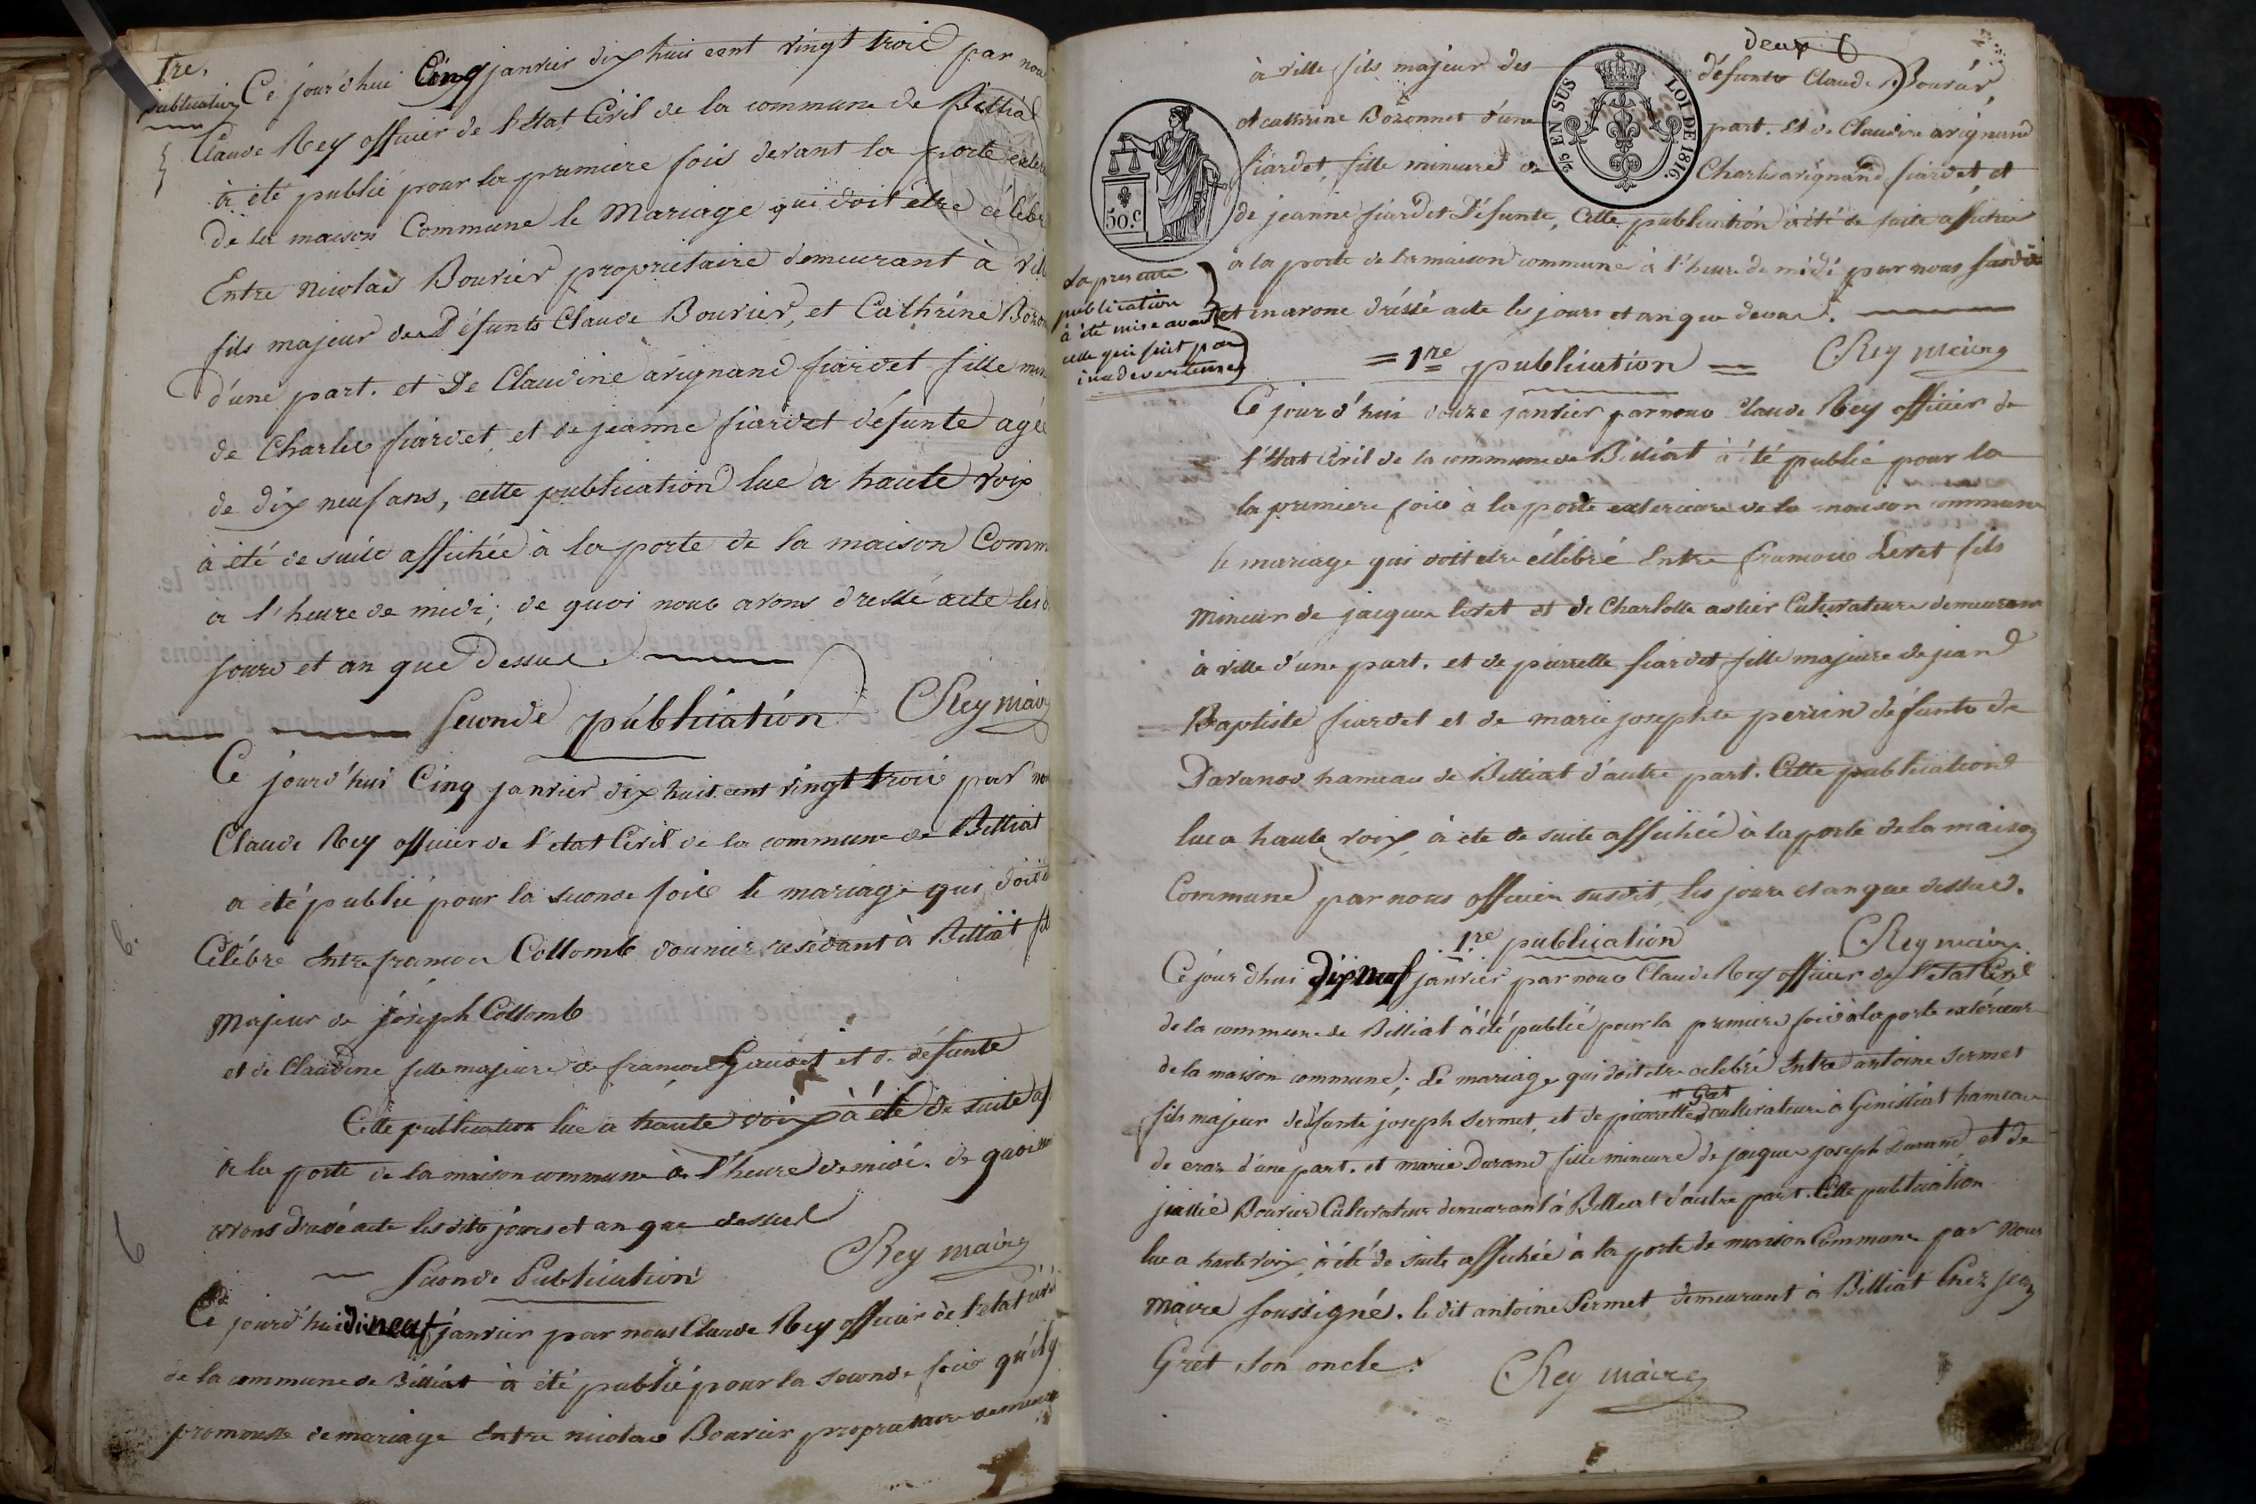 1re.
publication
Ce jourd'hui Cinq janvier dix huit cent vingt trois par nou
Claude Rey officier de l'Etat Civil de la commune de Billiat
à été publié pour la premiere fois devant la porte
de la maison Commune le Mariage qui doit être célébr
Entre nicolas Bouvier propriétaire demeurant à vill
fils majeur des Défunts Claude Bouvier, et Cathrine Bozon
d'une part. et De Claudine avignand fiardet fille min
de Charles fiardet, et de jeanne fiardet défunte agée
de dix neuf ans, cette publication lue a haute voix
à été de suite affichée à la porte de la maison Comm
à l'heure de midi; de quoi nous avons dressé acte les
jours et an que Dessus.
Seconde publication CRey maire
Ce jourd'hui Cinq janvier dix huit cent vingt trois par no
Claude Rey officier de l'etat Civil de la commune de Billiat
a été publié pour la seconde fois le mariage qui doit
Célébré Entre francois Collomb résidant à Billiat fil
Majeur de joseph Collomb
et de Claudine fille majeure de françois et de défunte
Cette publication lue a haute voix à été de suite af
à la porte de la maison commune à l'heure de midi. de quoi nou
avons dressé acte les dits jours et an que dessus
CRey maire
Seconde Publication
Ce jourd'hui dineuf janvier par nous Claude Rey officier de l'etat civil
de la commune de Billiat à été publié pour la seconde fois qu'il y
promesse de mariage Entre nicolas Bouvier propriétaire demeura
6.
6
deux
à ville fils majeur des défunts Claude Bouvier
et cathrine Bozonnet d'une part. Et de Claudine avignand
fiardet, fille mineure de Charles avignand fiardet, et
de jeanne fiardet Défunte, Cette publication à été de suite affichée
à la porte de la maison commune à l'heure de midi par nous susdit
et en avons dréssé acte les jours et an que dessus.
EN SUS
LOI DE 1816.
50.c
La presente
publication
à été mise avant
celle qui suit par
inadvertence
= 1re publication = CRey maire
Ce jourd'hui douze janvier par nous Claude Rey officier de
l'Etat Civil de la commune de Billiat à été publié pour la
la premiere fois à la porte exterieure de la maison commune
le mariage qui doit etre célébré Entre francois Levet fils
Mineur de jacques levet et de Charlotte astier Cultivateurs demeurant
à ville d'une part. et de pierrette fiardet fille majeure de jean
Baptiste fiardet et de marie josephte perrin défunts de
Davanod hameau de Billiat d'autre part. Cette publication
lue a haute voix, à ete de suite affichée à la porte de la maison
Commune par nous officier susdit, les jours et an que dessus.
1re publication CRey maire
Ce jourd'hui dix neuf janvier par nous Claude Rey officier de l'etat Civil
de la commune de Billiat à été publié pour la premiere fois à la porte exterieure
de la maison commune; Le mariage qui doit etre celebré Entre antoine Sermet
fils majeur de défunte joseph Sermet, et de pierrette Gret cultivateurs à Genissiat hameau
de craz d'une part. et marie Durand fille mineure de jacques joseph Durand et de
Bouvier Cultivateur demeurant à Billiat d'autre part. Cette publication
lue a haute voix, à été de suite affichée à la porte de maison Commune par Nous
Maire soussigné. le dit antoine Sermet demeurant à Billiat Chez
Gret son oncle. CRey maire